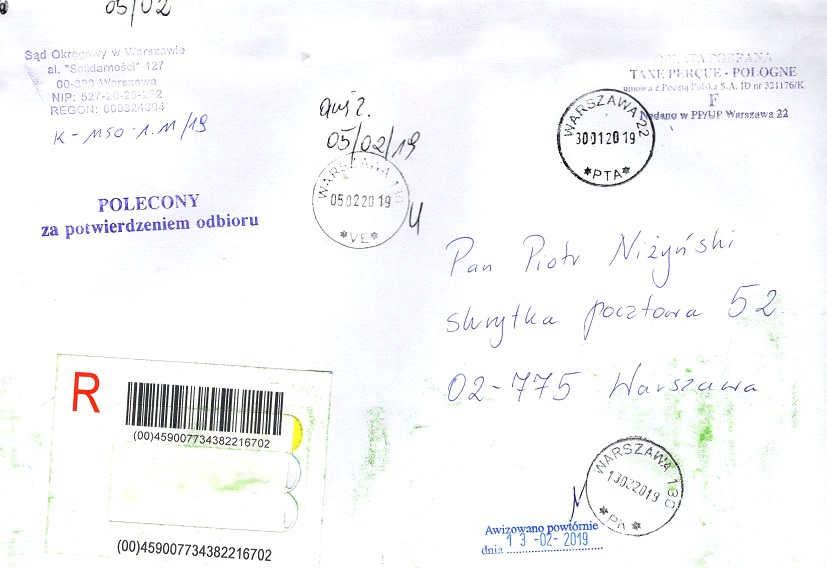 05/02
Sąd Okręgowy w Warszawie
al. "Solidarności" 127
00-898 Warszawa
NIP: 527-20-26-252
REGON: 000324694
K - MSO . 1.M /19
OPŁATA POBRANA
TAXE PERÇUE - POLOGNE
umowa z Pocztą Polską S.A. ID nr 321176/K
F
Nadano w PP/UP Warszawa 22
WARSZAWA 22
30 01 20 19
*PTA*
05/02/19
WARSZAWA 130
05 02 20 19
*VE*
POLECONY
za potwierdzeniem odbioru
Pan Piotr Niżyński
skrytka pocztowa 52
02-775 Warszawa
R
(00)459007734382216702
(00)459007734382216702
WARSZAWA 130
13022019
Awizowano powtórnie
dnia 13 -02- 2019